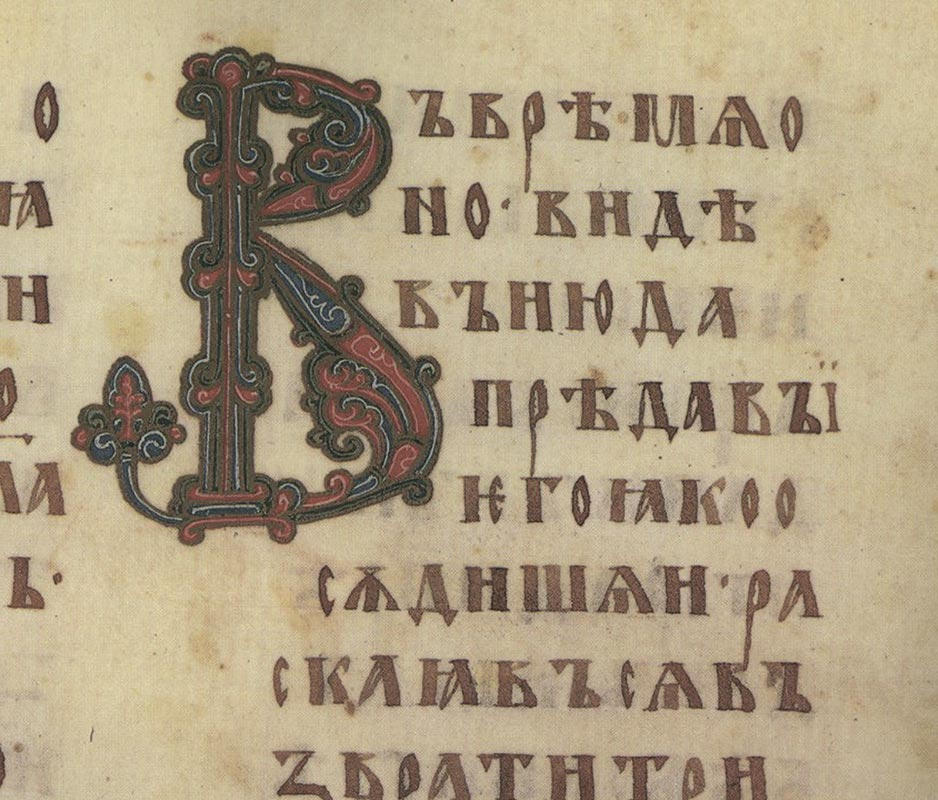 О
Ꙗ
И
О
ЛА
Ь·
ВЪВРѢМѦО
НО·ВИДѢ
ВЪИЮДА
ПРѢДАВЪЇ
ѤГОꙖКОО
СѪДИШѦИ·РА
СКАꙖВЪСѦВЪ
ꙀВРАТИТРИ